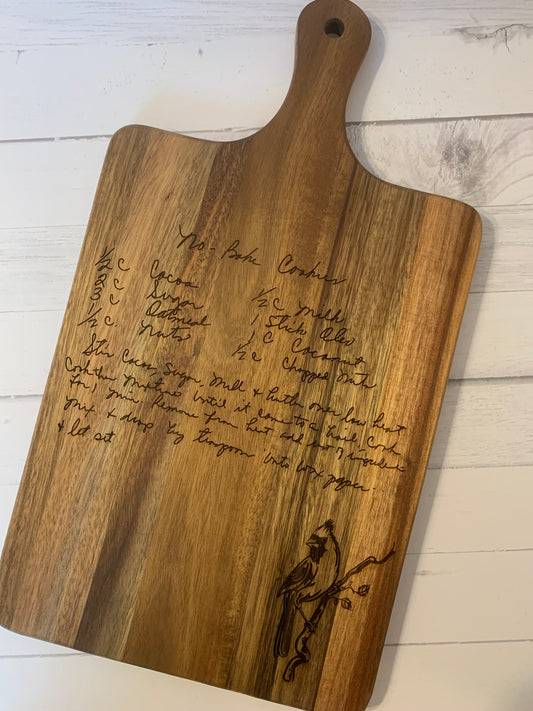 No-Bake Cookies
½ C Cocoa
2 C Sugar
3 C Oatmeal
½ C. Nuts
½ C Milk
1 Stick Oleo
1 C Coconut
½ C Chopped Nuts
Stir Cocoa, Sugar, Milk & butter over low heat
Cook the mixture until it come to a boil, Cook
for 1 min Remove from heat add rest of ingredients
Mix & drop by teaspoon into wax paper.
& let set